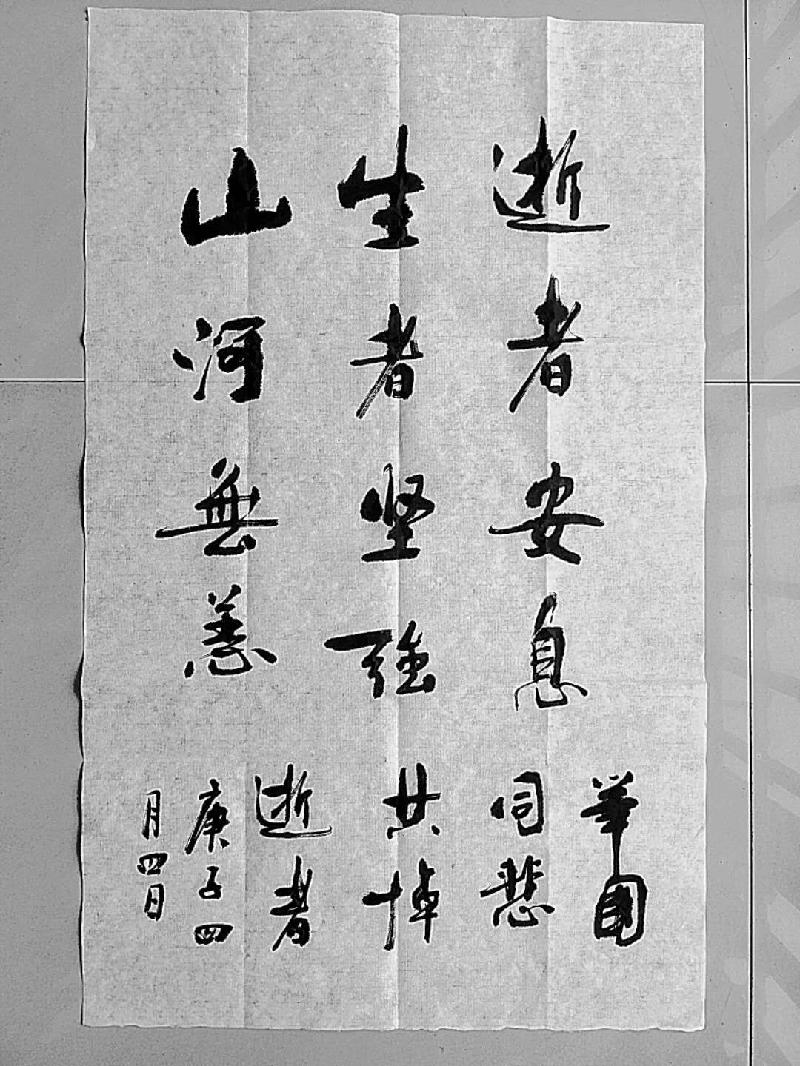 逝者安息
生者坚强
山河無恙
举国
同悲
共悼
逝者
庚子四
月四日